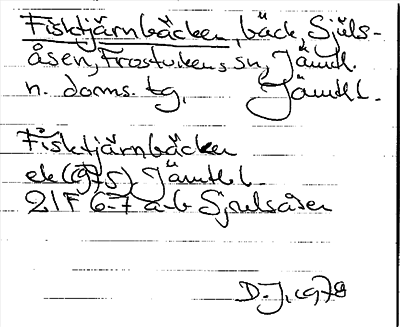 Fisktjärnbäcken, bäck, Sjuls-
åsen, Frostvikens sn, Jämtl.
n. doms. tg, Jämtl l.
Fisktjärnbäcken
ek (1975) Jämtl l.
21F 6-7 a-b Sjulsåsen
D.J. 1978